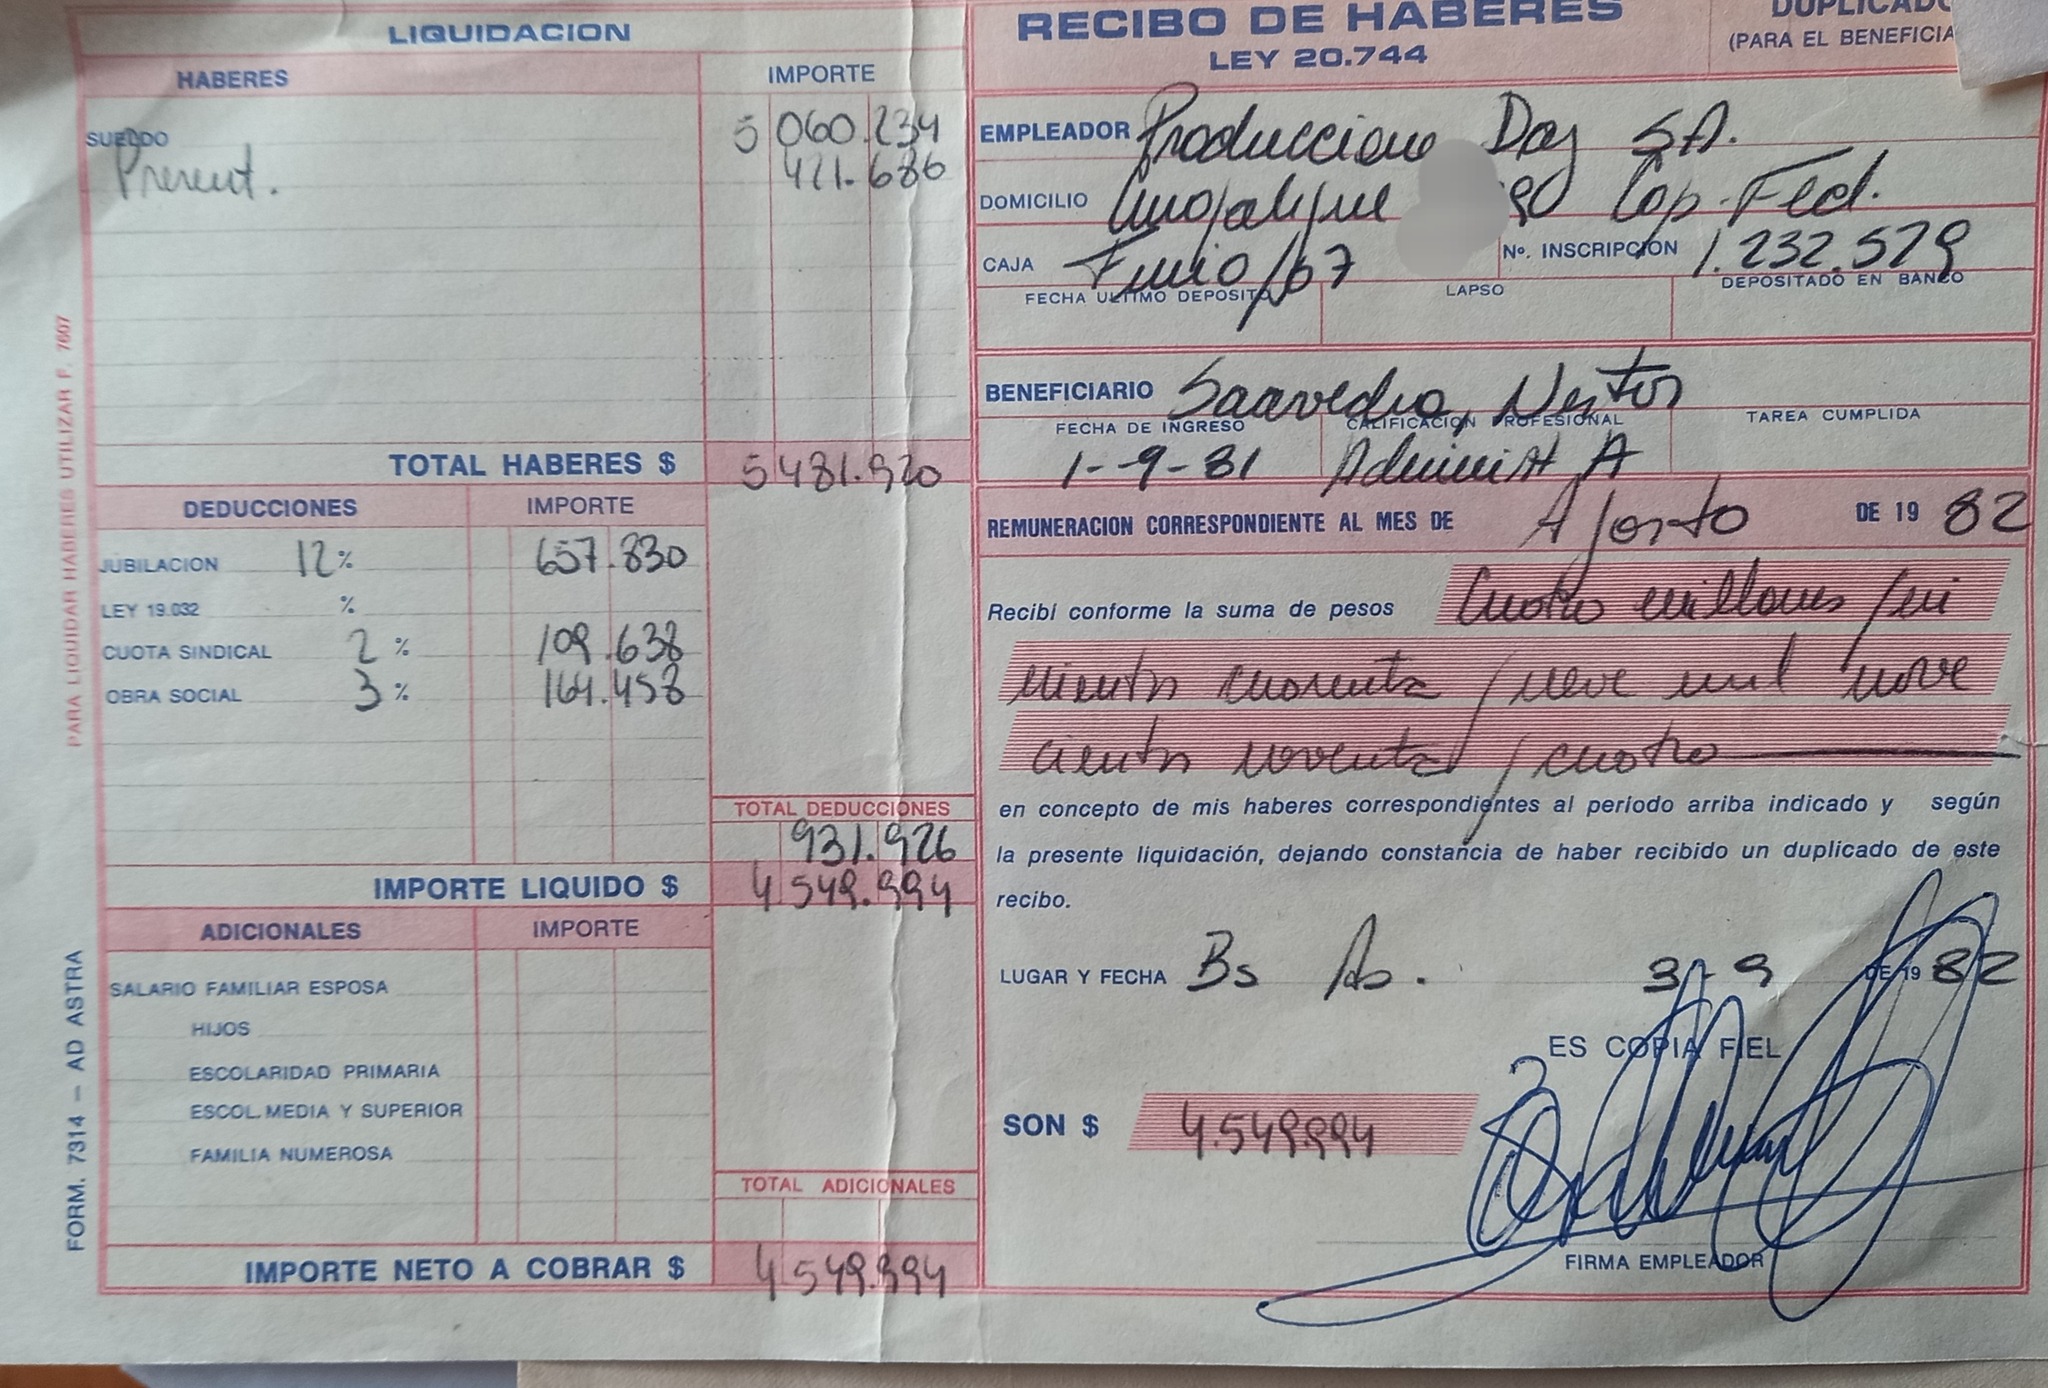 LIQUIDACION
HABERES IMPORTE
SUELDO 5 060.234
Present. 421.686
TOTAL HABERES $ 5 481.920
DEDUCCIONES IMPORTE
JUBILACION 12 % 657.830
LEY 19.032 %
CUOTA SINDICAL 2 % 109.638
OBRA SOCIAL 3 % 164.458
TOTAL DEDUCCIONES
931.926
IMPORTE LIQUIDO $ 4 549.994
ADICIONALES IMPORTE
SALARIO FAMILIAR ESPOSA
HIJOS
ESCOLARIDAD PRIMARIA
ESCOL. MEDIA Y SUPERIOR
FAMILIA NUMEROSA
TOTAL ADICIONALES
IMPORTE NETO A COBRAR $ 4 549.994
PARA LIQUIDAR HABERES UTILIZAR F. 7607
FORM. 7314 — AD ASTRA
RECIBO DE HABERES
LEY 20.744
DUPLICADO
(PARA EL BENEFICIA
EMPLEADOR Day SA.
DOMICILIO 90 Cap. Fed.
CAJA /67 Nº. INSCRIPCION 1.232.579
FECHA ULTIMO DEPOSITO LAPSO DEPOSITADO EN BANCO
BENEFICIARIO Saavedra, Nestor
FECHA DE INGRESO CALIFICACION PROFESIONAL TAREA CUMPLIDA
1-9-81 Administ A
REMUNERACION CORRESPONDIENTE AL MES DE Agosto DE 19 82
Recibí conforme la suma de pesos Cuatro millones qui
nientos cuarenta y nueve mil nove
cientos noventa y cuatro
en concepto de mis haberes correspondientes al periodo arriba indicado y según
la presente liquidación, dejando constancia de haber recibido un duplicado de este
recibo.
LUGAR Y FECHA Bs As. 3-9 DE 19 82
ES COPIA FIEL
SON $ 4.549.994
FIRMA EMPLEADOR